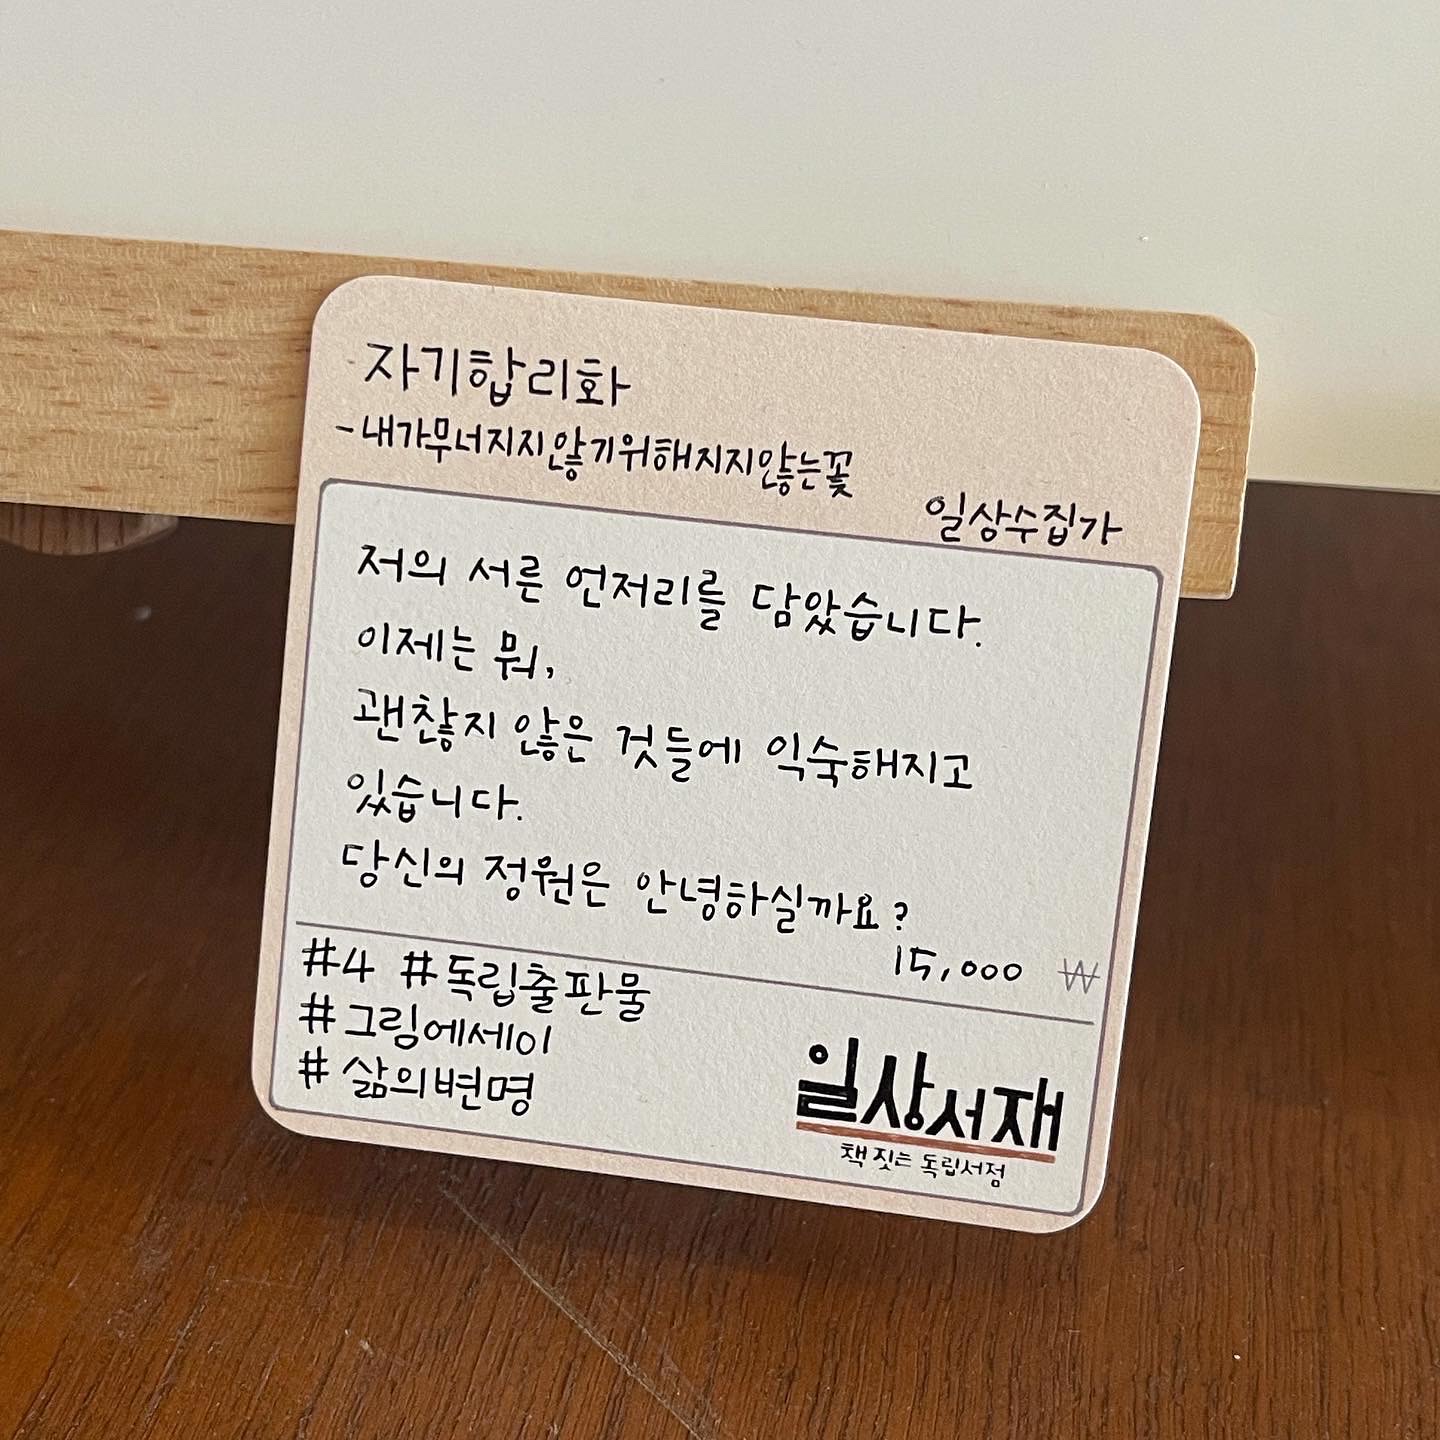 자기합리화
-내가무너지지않기위해지지않는꽃
일상수집가
저의 서른 언저리를 담았습니다.
이제는 뭐,
괜찮지 않은 것들에 익숙해지고
있습니다.
당신의 정원은 안녕하실까요?
15,000 ₩
#4 #독립출판물
#그림에세이
#삶의변명
일상서재
책 짓는 독립서점